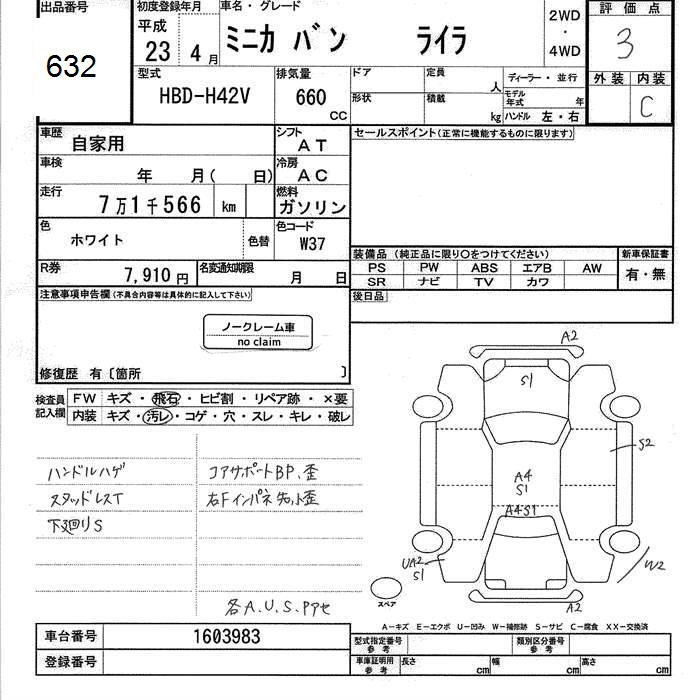 出品番号
632
初度登録年月
平成
23 4 月
車名・グレード
ミニカ バン ライラ
2WD
・
4WD
評価点
3
外装 内装
C
型式
HBD-H42V
排気量
660
CC
ドア
定員
人
形状
積載
kg
ディーラー・並行
モデル年式 年
ハンドル 左・右
車歴
自家用
シフト
AT
車検
年 月( 日)
冷房
AC
走行
7万1千566 km
燃料
ガソリン
色
ホワイト
色替
色コード
W37
R券
7,910円
名変通知期限
月 日
セールスポイント(正常に機能するものに限ります)
装備品 (純正品に限り○をつけてください)
新車保証書
PS PW ABS エアB AW
SR ナビ TV カワ
有・無
後日品
注意事項申告欄(不具合内容等は具体的に記入して下さい)
ノークレーム車
no claim
修復歴 有〔箇所 〕
検査員
記入欄
FW キズ・飛石・ヒビ割・リペア跡・×要
内装 キズ・汚レ・コゲ・穴・スレ・キレ・破レ
ハンドルハゲ
スタッドレスT
下廻りS
コアサポートBP.歪
右Fインパネ先小歪
各A.U.S.Pアセ
A2
S1
S2
A4
S1
A4S1
UA2
S1
W2
A2
スペア
A−キズ E−エクボ U−凹み W−補修跡 S−サビ C−腐食 XX−交換済
車台番号
1603983
登録番号
型式指定番号
参考
類別区分番号
参考
車庫証明用
参考
長さ cm 幅 cm 高さ cm